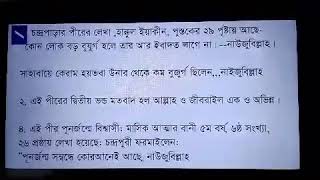 চন্দ্রপাড়ার পীরের লেখা ,হাক্কুল ইয়াকীন, পুস্তকের ২৯ পৃষ্টায় আছে-
কোন লোক বড় বুযুর্গ হলে তার আর ইবাদত লাগে না । --নাউজুবিল্লাহ।
সাহাবায়ে কেরাম হয়তবা উনার থেকে কম বুজুর্গ ছিলেন,,,নাইজুবিল্লাহ
২. এই পীরের দ্বিতীয় ভন্ড মতবাদ হল আল্লাহ ও জীবরাইল এক ও অভিন্ন।
৪. এই পীর পুনর্জন্মে বিশ্বাসী: মাসিক আত্মার বানী ৫ম বর্ষ, ৬ষ্ঠ সংখ্যা,
২৬ পৃষ্ঠায় লেখা হয়েছে: চন্দ্রপুরী ফরমাইলেন:
"পুনর্জন্ম সম্বন্ধে কোরআনেই আছে, নাউজুবিল্লাহ